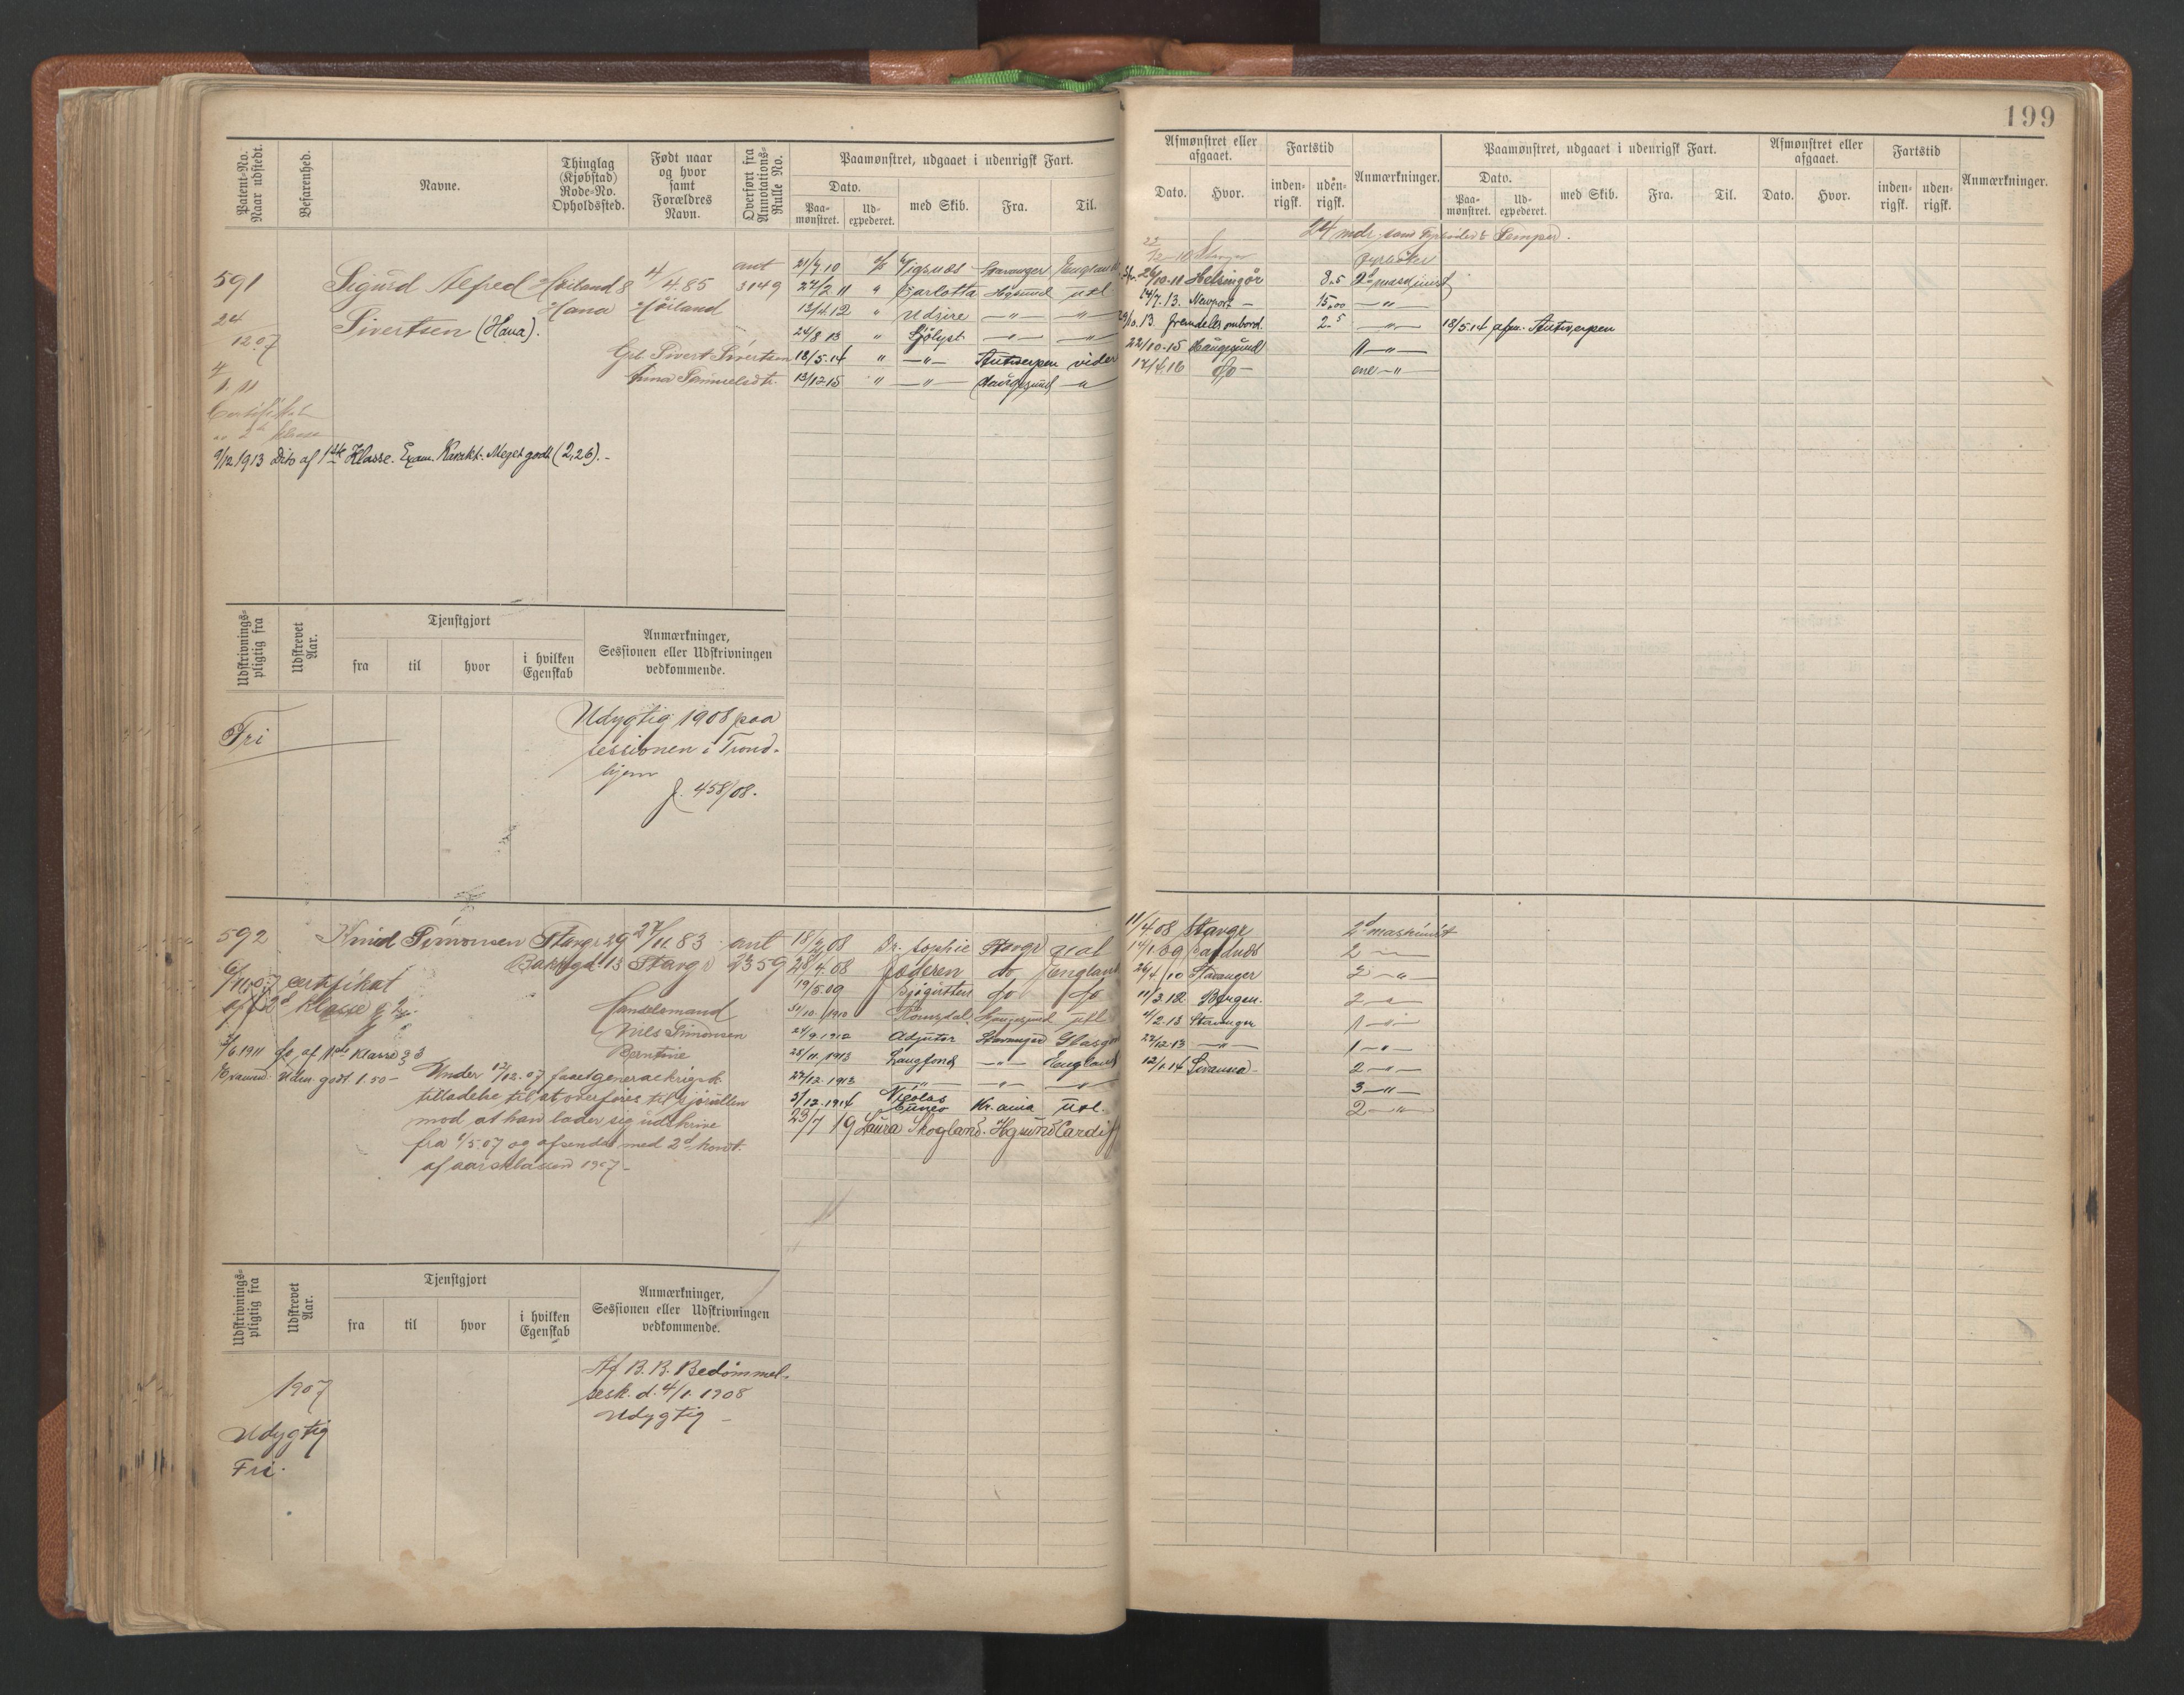 199
Patent-No. Naar udstedt.
Befarenhed.
Navne.
Thinglag (Kjøbstad) Rode-No. Opholdssted.
Født naar og hvor samt Forældres Navn.
Overført fra Annotations-Rulle No.
Paamønstret, udgaaet i udenrigsk Fart.
Dato.
Paa-mønstret.
Ud-expederet.
med Skib.
Fra.
Til.
Afmønstret eller afgaaet.
Dato.
Hvor.
Fartstid
inden-rigsk.
uden-rigsk.
Anmærkninger.
Paamønstret, udgaaet i udenrigsk Fart.
Dato.
Paa-mønstret.
Ud-expederet.
med Skib.
Fra.
Til.
Afmønstret eller afgaaet.
Dato.
Hvor.
Fartstid
inden-rigsk.
uden-rigsk.
Anmærkninger.
24 mdr. som Fyrbøder & Lemper.
591
Sigurd Alfred
Høiland 8
4/4.85
ant
3149
24
12.07
Sivertsen (Hana).
Hana
Høiland
Gb. Sivert Sivertsen
Anna Samuelsdtr.
4/1.11
Certifikat
2d Klasse
9/12 1913 Dito af 1ste Klasse. Exam. Karakt. Meget godt (2,26).-
21/7.10 Vigsnes Stavanger England
22/2.11 " Carlotta Hgsund utl
12/4.12 " Udsire —"— —"—
24/8 13 " Sjölyst —"— —"—
18/5.14 " —"— Antwerpen videre
13/12 15 " —"— Haugesund —"—
22/12-10 Stavanger Fyrbøter
26/10-11 Helsingør 8.5 2d maskinist
14/7.13. Newport — 15,00 —"—
29/10.13. fremdeles ombord. 2.5 —"— 18/5.14 afm. Antwerpen
22/10-15 Haugesund 1—"—
17/4.16 do — one—"—
Udskrivnings-pligtig fra
Udskrevet Aar.
Tjenstgjort
fra
til
hvor
i hvilken Egenskab
Anmærkninger, Sessionen eller Udskrivningen vedkommende.
Fri
Udygtig 1908 paa
sessionen i Trond-
hjem
J. 458/08.
592
Knud Simonsen
Stavgr 29
27/11.83
ant
2359
Bakkegd. 13
Stavgr
6/11.07 certifikat
af 2d Klasse
Handelsmand
Nils Simonsen
Berntine
3/6.1911 do. af 1ste Klasse 33
Examen: Udm. godt 1.50 —
Under 12/12.07 faaet generalkrigsk.
tilladelse til at overføres til sjørullen
mod at han lader sig udskrive
fra 1/5.07 og afsendes med 2d kont.
af aarsklassen 1907 —
18/2.08 Dr. Sophie Stavgr utl
28/4.08 Jæderen do England
19/5.09 Sjøgutten do do
31/10.1910 Romsdal Haugesund utl
24/9.1912 Adjutør Stavanger Glasgow
25/11.1913 Langfond —"— England
27/12.1913 —"— —"— —"—
3/12.1914 Nicolas Cuneo Kr.ania Utl.
23/7 19 Laura Skogland. Hgsund Cardiff
11/4 08 Stavgr 2d maskinist
14/1.09 Cardiff 2 —"—
26/4/10 Stavanger 2 —"—
11/3.12. Bergen. 2 —"—
4/2.13 Stavanger 1 —"—
22/12.13 —"— 1 —"—
12/1.14 Savanna 2 —"—
3 —"—
2 —"—
Udskrivnings-pligtig fra
Udskrevet Aar.
Tjenstgjort
fra
til
hvor
i hvilken Egenskab
Anmærkninger, Sessionen eller Udskrivningen vedkommende.
1907
Udygtig
Fri.
Af B. B. Bedømmel-
sesk. d. 4/1. 1908
Udygtig —